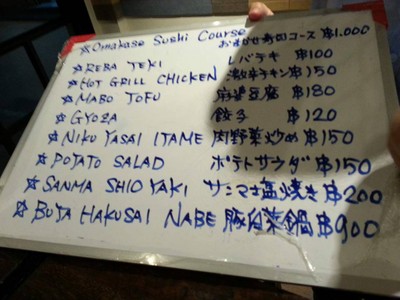 ☆Omakase Sushi Course おまかせ寿司コース ฿1.000
☆REBA TEKI レバテキ ฿100
☆HOT GRILL CHICKEN 激辛チキン ฿150
☆MABO TOFU 麻婆豆腐 ฿180
☆GYOZA 餃子 ฿120
☆NIKU YASAI ITAME 肉野菜炒め ฿150
☆POTATO SALAD ポテトサラダ ฿150
☆SANMA SHIO YAKI サンマ塩焼き ฿200
☆BUTA HAKUSAI NABE 豚白菜鍋 ฿900